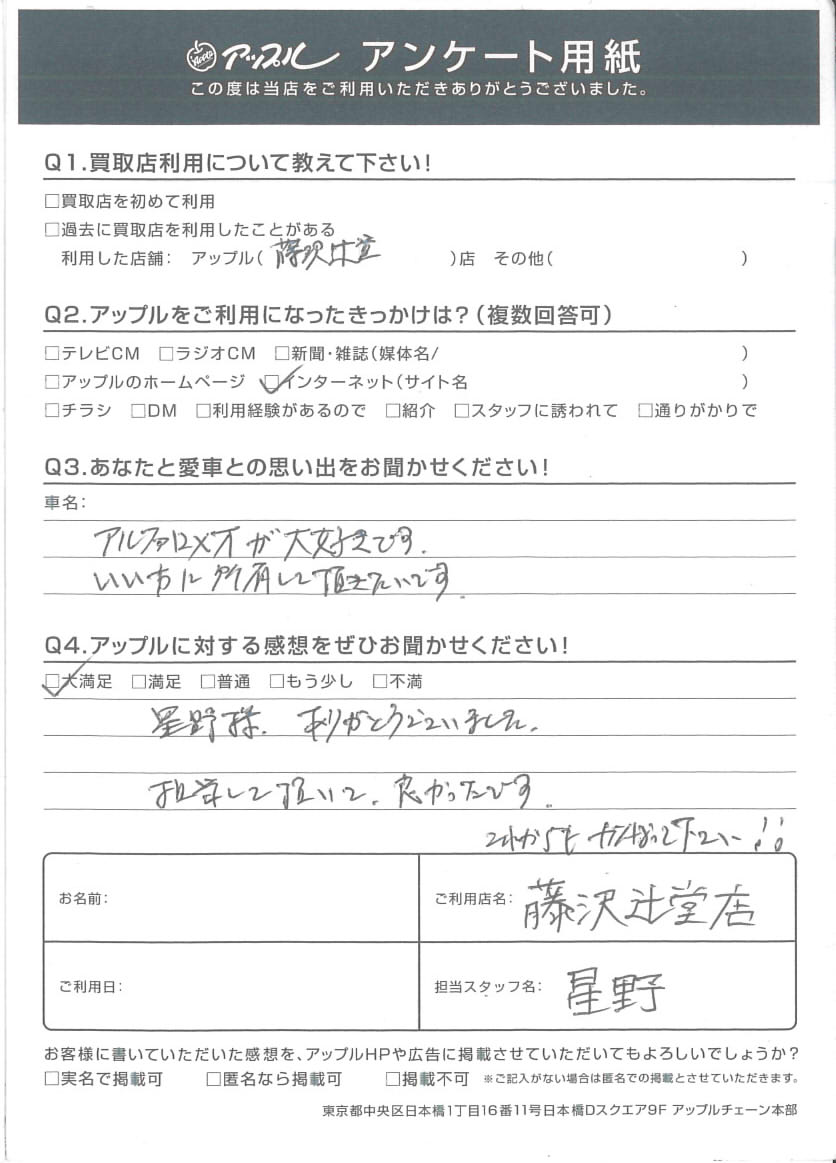 Apple アップル アンケート用紙
この度は当店をご利用いただきありがとうございました。
Q1.買取店利用について教えて下さい!
□買取店を初めて利用
□過去に買取店を利用したことがある
利用した店舗: アップル( 藤沢辻堂 )店 その他( )
Q2.アップルをご利用になったきっかけは?(複数回答可)
□テレビCM □ラジオCM □新聞・雑誌(媒体名/ )
□アップルのホームページ ☑インターネット(サイト名 )
□チラシ □DM □利用経験があるので □紹介 □スタッフに誘われて □通りがかりで
Q3.あなたと愛車との思い出をお聞かせください!
車名:
アルファロメオが大好きです.
いい方に所有して頂きたいです.
Q4.アップルに対する感想をぜひお聞かせください!
☑大満足 □満足 □普通 □もう少し □不満
星野様. ありがとうございました.
担当して頂いて、良かったです.
これからもがんばって下さい!!
お名前: ご利用店名: 藤沢辻堂店
ご利用日: 担当スタッフ名: 星野
お客様に書いていただいた感想を、アップルHPや広告に掲載させていただいてもよろしいでしょうか?
□実名で掲載可 □匿名なら掲載可 □掲載不可 ※ご記入がない場合は匿名での掲載とさせていただきます。
東京都中央区日本橋1丁目16番11号日本橋Dスクエア9F アップルチェーン本部